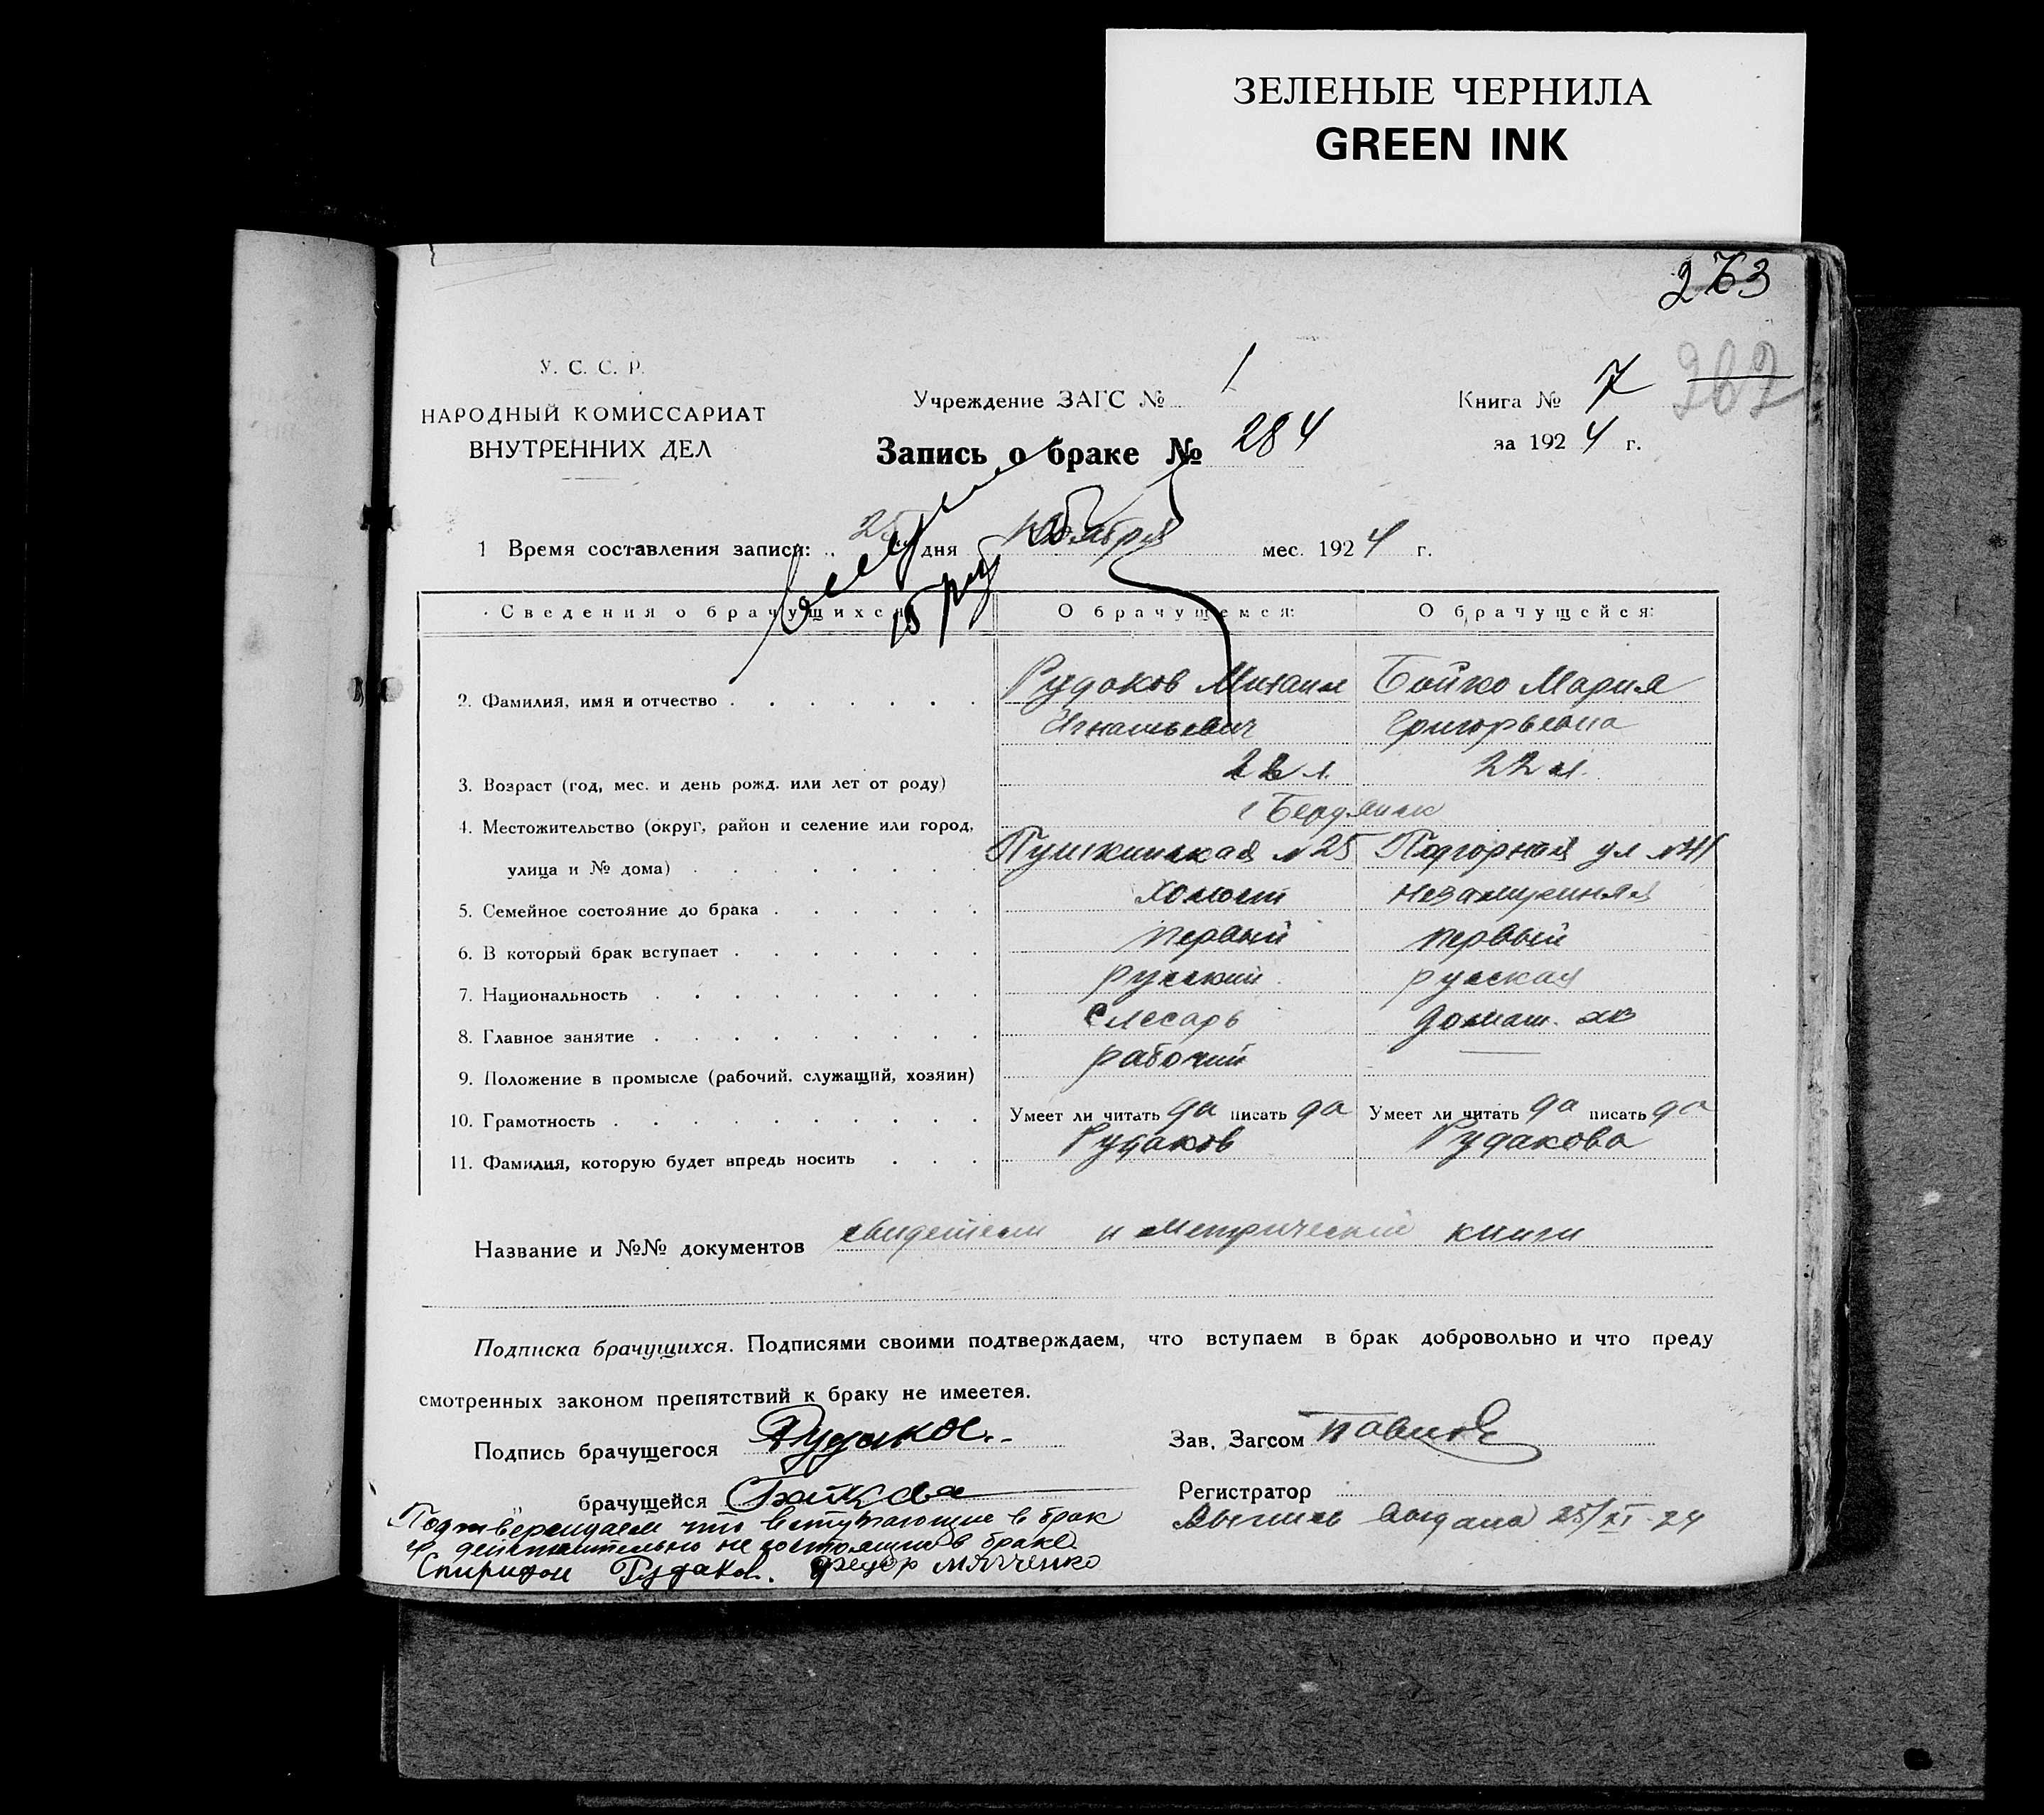 ЗЕЛЕНЫЕ ЧЕРНИЛА
GREEN INK
263
262
У. С. С. Р.
НАРОДНЫЙ КОМИССАРИАТ
ВНУТРЕННИХ ДЕЛ
Учреждение ЗАГС № 1
Книга № 7
Запись о браке № 284
за 1924 г.
1 Время составления записи: 25 дня ноября мес. 1924 г.
Сведения о брачущихся
О брачущемся: О брачущейся:
2. Фамилия, имя и отчество Рудаков Михаил Бойко Мария
Игнатьевич Григорьевна
3. Возраст (год, мес. и день рожд. или лет от роду) 22 л. 22 л.
г Бердянск
4. Местожительство (округ, район и селение или город,
улица и № дома) Пушкинская №25 Подгорная ул №41
5. Семейное состояние до брака холост незамужняя
6. В который брак вступает первый первый
7. Национальность русский русская
8. Главное занятие слесарь домаш. хоз
9. Положение в промысле (рабочий, служащий, хозяин) рабочий —
10. Грамотность Умеет ли читать да писать да Умеет ли читать да писать да
11. Фамилия, которую будет впредь носить Рудаков Рудакова
Название и №№ документов свидетели и метрический книги
Подписка брачущихся. Подписями своими подтверждаем, что вступаем в брак добровольно и что преду
смотренных законом препятствий к браку не имеетея.
Подпись брачущегося Рудаков
Зав. Загсом
„ брачущейся Бойкова
Регистратор
Подтверждаем что вступающие в брак
действительно не состоящие в браке
Спиридон Рудаков. Федор
Выпись выдана 25/XI-24